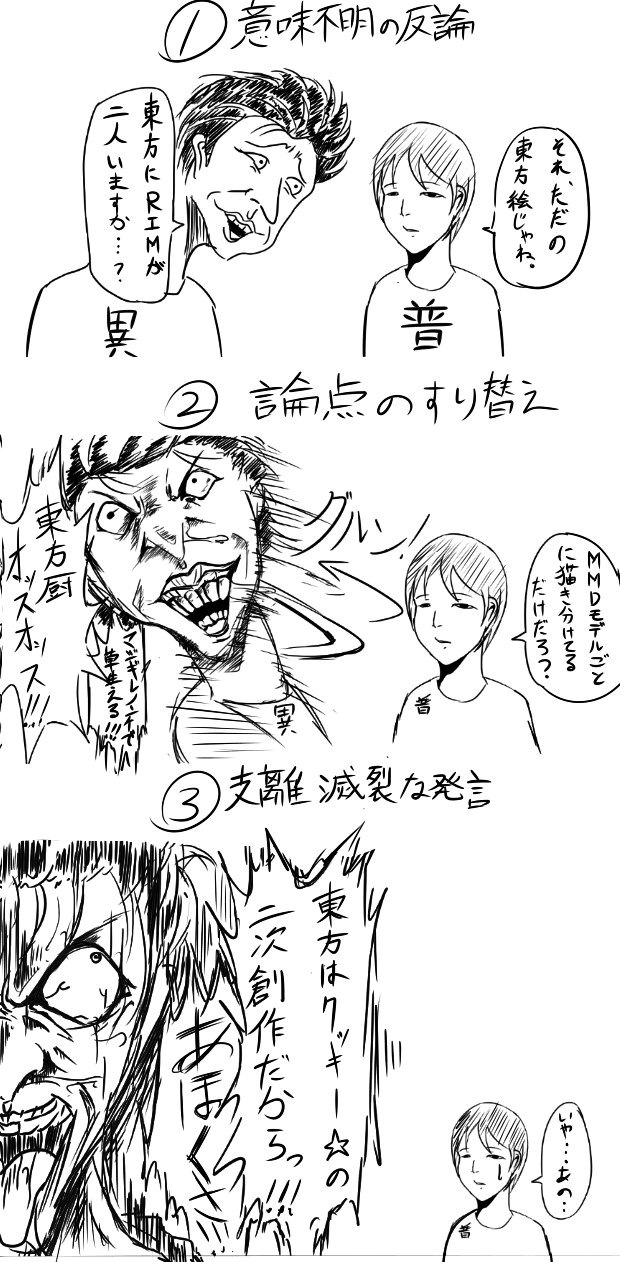 ① 意味不明の反論
それ、ただの
東方絵じゃね。
東方にRIMが
二人いますか…?
異
普
② 論点のすり替え
MMDモデルごと
に描き分けてる
だけだろ?
グルン!
東方厨
オッスオッス!!!
草生える!!!
異
普
③ 支離滅裂な発言
東方はクッキー☆の
二次創作だからっ!!!
あまくさ
いや…あの…
普